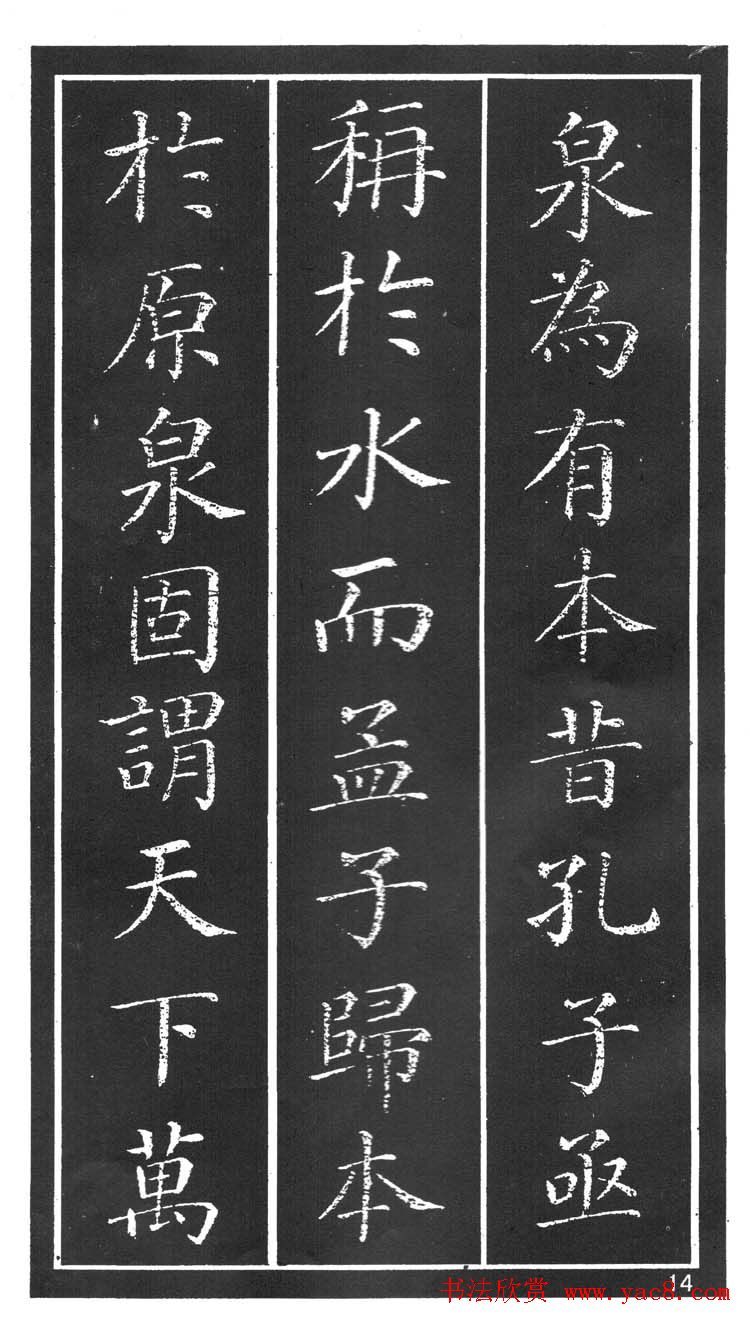 泉為有本昔孔子亟
稱於水而孟子歸本
於原泉固謂天下萬
14
书法欣赏 www.yac8.com